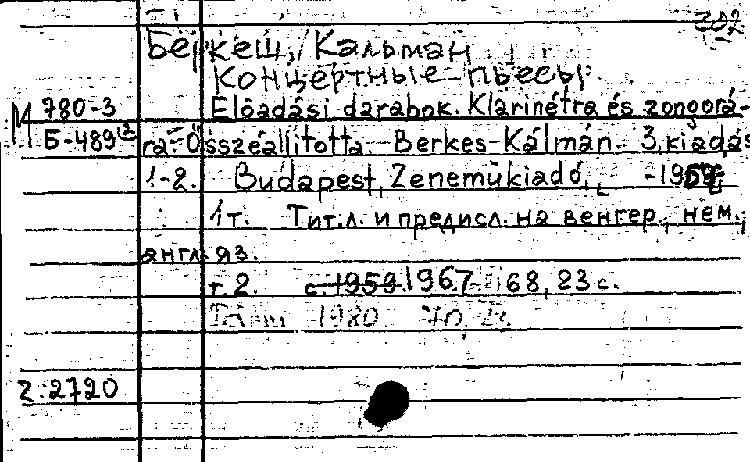 302
Беркеш, Кальман
Концертные пьесы
М 780-3 Előadási darabok. Klarinétra és zongorá-
Б-489 ra. Összeállította Berkes Kálmán. 3. kiadás
1-2. Budapest, Zeneműkiadó,
1 т. Тит. л. и предисл. на венгер., нем.,
англ. яз.
т. 2. с. 1959 1967 68, 23 с.
1980
Z. 2720